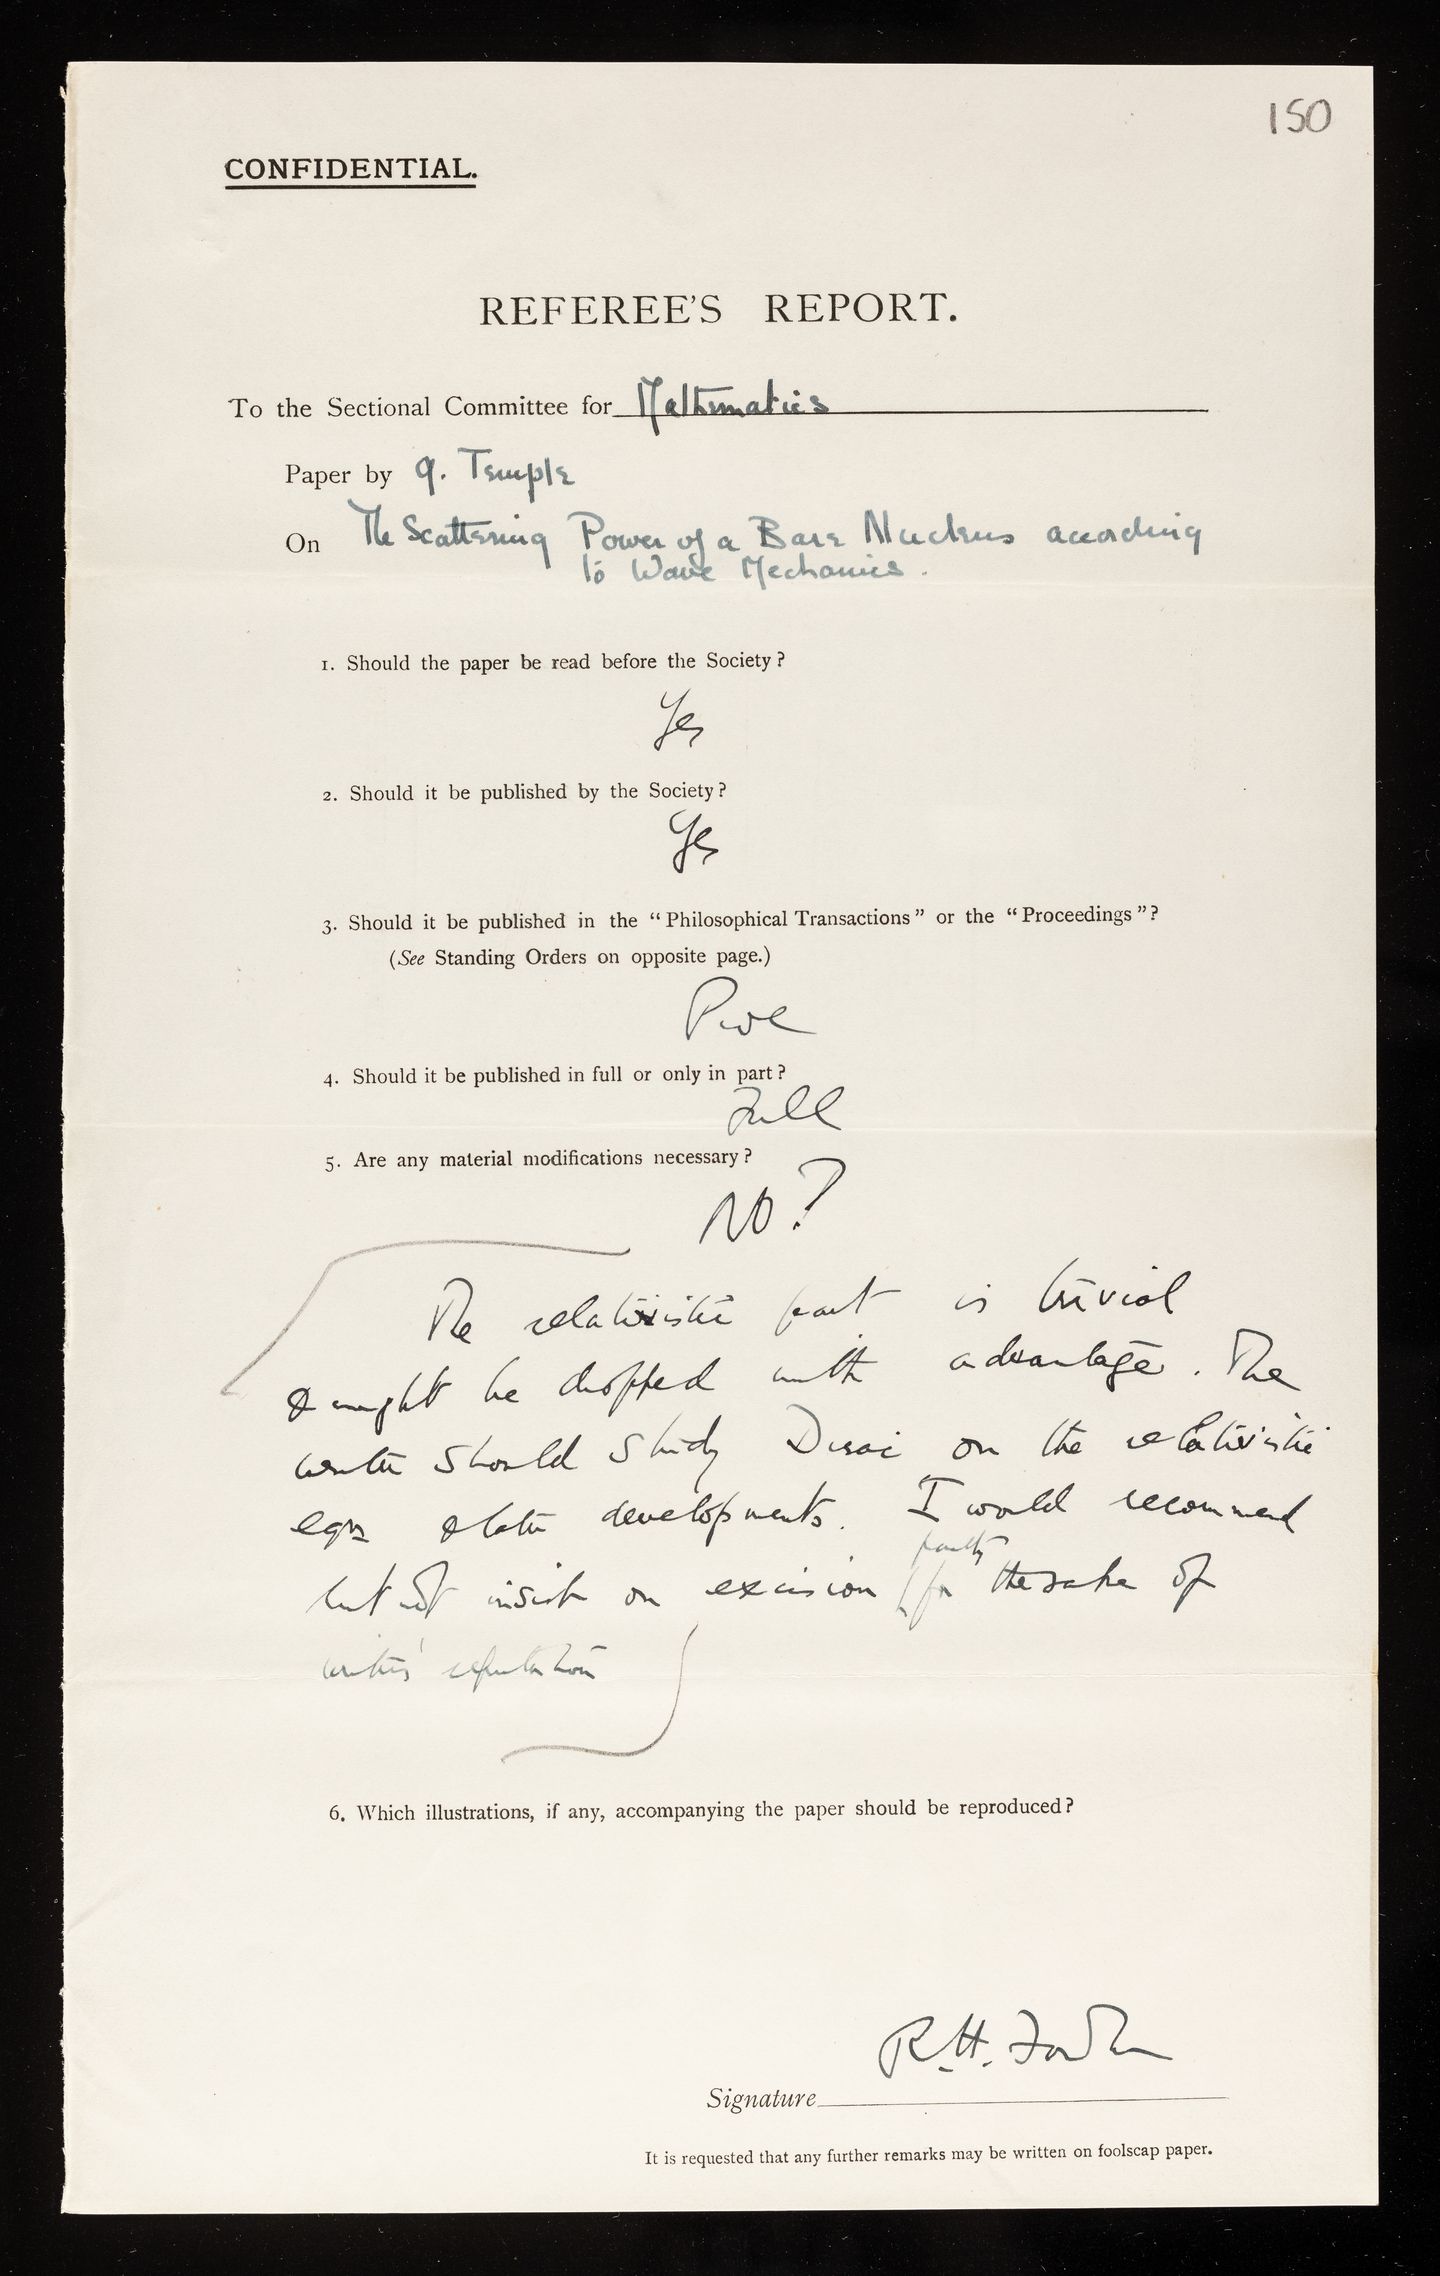 150
CONFIDENTIAL.
REFEREE'S REPORT.
To the Sectional Committee for Mathematics
Paper by G. Temple
On The Scattering Power of a Bare Nucleus according
to Wave Mechanics.
1. Should the paper be read before the Society?
Yes
2. Should it be published by the Society?
Yes
3. Should it be published in the "Philosophical Transactions" or the "Proceedings"?
(See Standing Orders on opposite page.)
Proc
4. Should it be published in full or only in part?
Full
5. Are any material modifications necessary?
No?
The relativistic part is trivial
& might be dropped with advantage. The
writer should study Dirac on the relativistic
eqns & later developments. I would recommend
partly
but not insist on excision for the sake of
writers' reputation
6. Which illustrations, if any, accompanying the paper should be reproduced?
R.H. Fowler
Signature
It is requested that any further remarks may be written on foolscap paper.